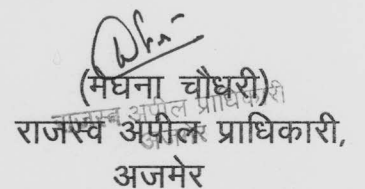 (मेघना चौधरी)
राजस्व अपील प्राधिकारी
अजमेर
राजस्व अपील प्राधिकारी,
अजमेर